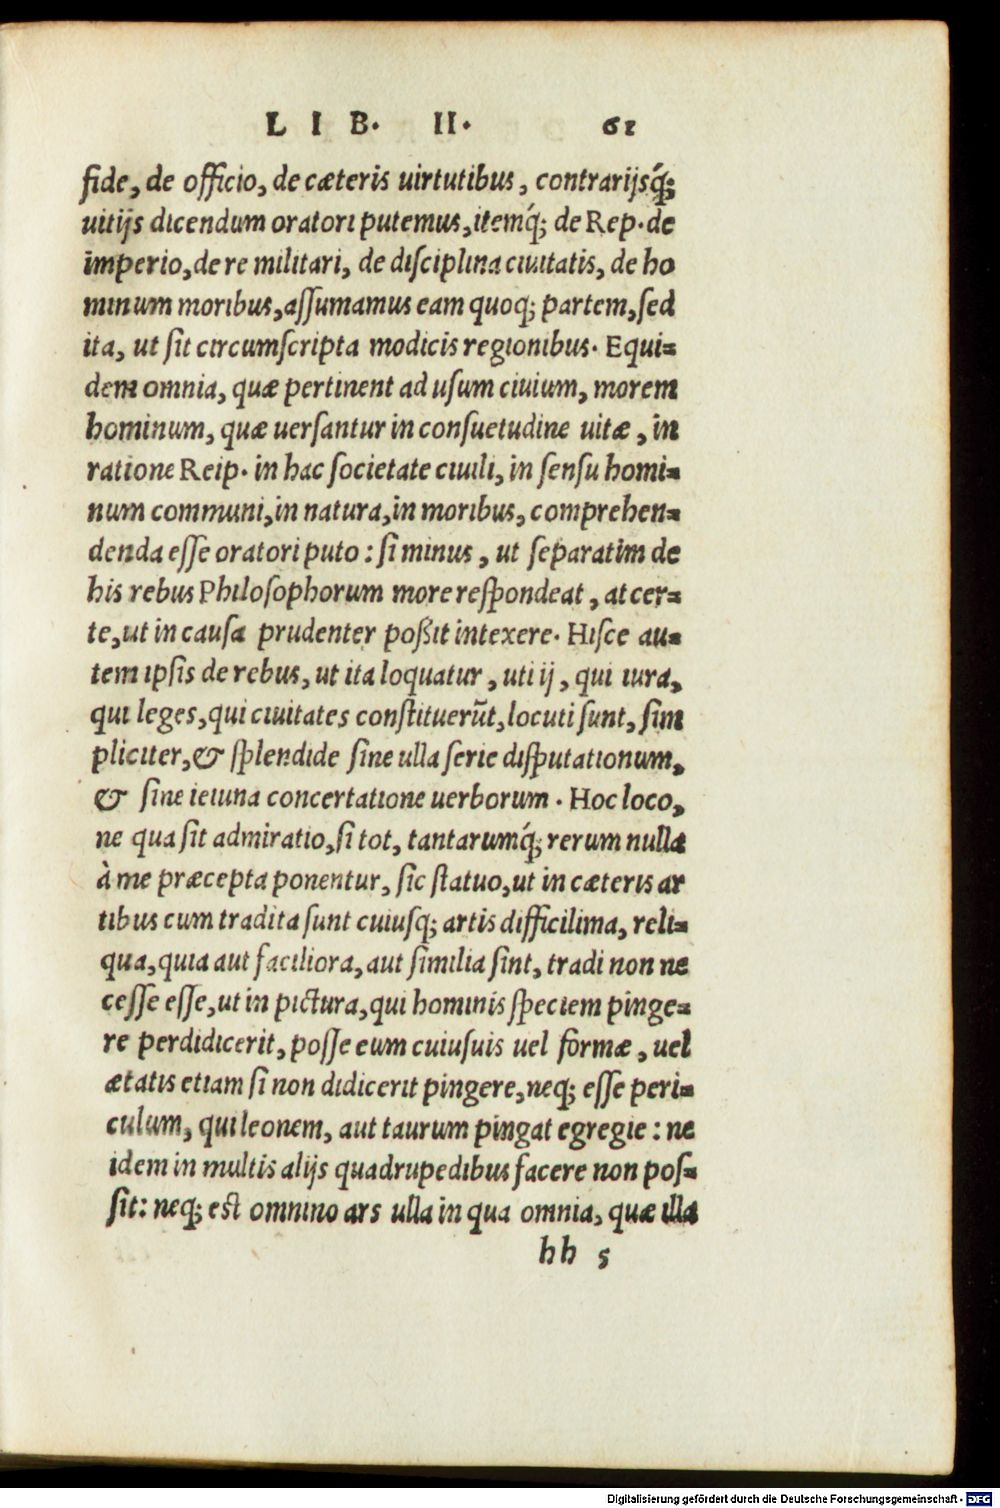 LIB. II. 61
fide, de officio, de cæteris uirtutibus, contrarijsq́;
uitijs dicendum oratori putemus, itemq́; de Rep. de
imperio, de re militari, de disciplina ciuitatis, de ho
minum moribus, assumamus eam quoq; partem, sed
ita, ut sit circumscripta modicis regionibus. Equi=
dem omnia, quæ pertinent ad usum ciuium, morem
hominum, quæ uersantur in consuetudine uitæ, in
ratione Reip. in hac societate ciuili, in sensu homi=
num communi, in natura, in moribus, comprehen=
denda esse oratori puto: si minus, ut separatim de
his rebus Philosophorum more respondeat, at cer=
te, ut in causa prudenter poßit intexere. Hisce au=
tem ipsis de rebus, ut ita loquatur, uti ij, qui iura,
qui leges, qui ciuitates constituerūt, locuti sunt, sim
pliciter, & splendide sine ulla serie disputationum,
& sine ieiuna concertatione uerborum. Hoc loco,
ne qua sit admiratio, si tot, tantarumq́; rerum nulla
à me præcepta ponentur, sic statuo, ut in cæteris ar
tibus cum tradita sunt cuiusq; artis difficilima, reli=
qua, quia aut faciliora, aut similia sint, tradi non ne
cesse esse, ut in pictura, qui hominis speciem pinge=
re perdidicerit, posse eum cuiusuis uel formæ, uel
ætatis etiam si non didicerit pingere, neq; esse peri=
culum, qui leonem, aut taurum pingat egregie: ne
idem in multis alijs quadrupedibus facere non pos=
sit: neq; est omnino ars ulla in qua omnia, quæ illa
hh 5
Digitalisierung gefördert durch die Deutsche Forschungsgemeinschaft - DFG